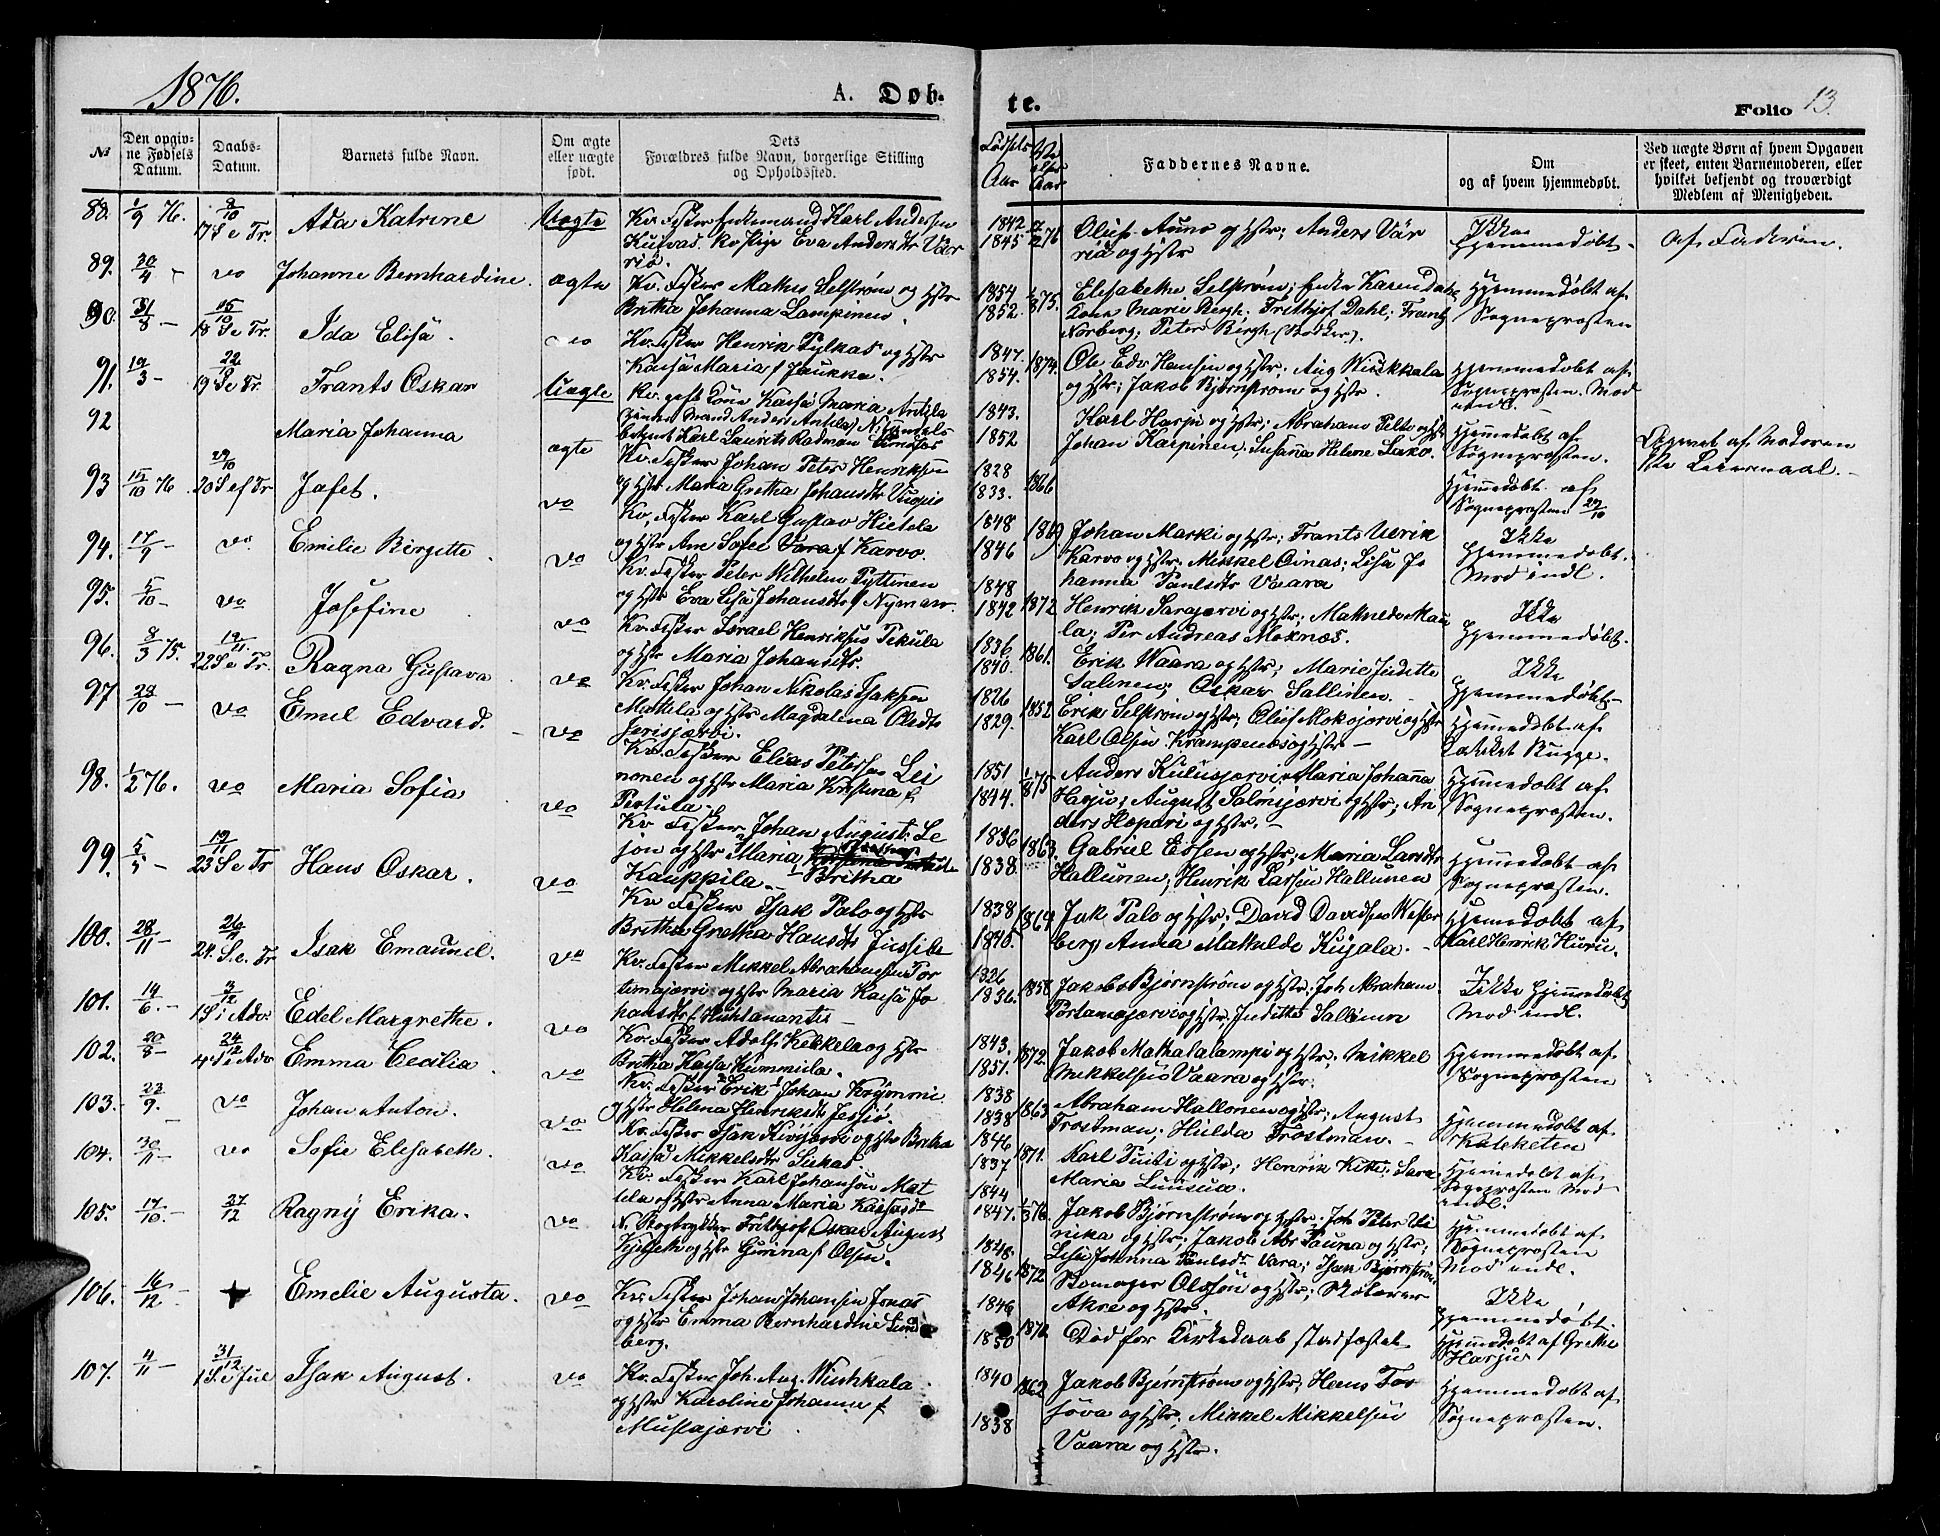 1876.
A. Døb-
te.
Folio 13.
№
Den opgiv-
ne Fødsels
Datum.
Daabs-
Datum.
Barnets fulde Navn.
Om ægte
eller uægte
født.
Dets
Forældres fulde Navn, borgerlige Stilling
og Opholdssted.
Fødsels
Aar
Faddernes Navne.
Om
og af hvem hjemmedøbt.
Ved uægte Børn af hvem Opgaven
er skeet, enten Barnemoderen, eller
hvilket bekjendt og troværdigt
Medlem af Menigheden.
88. 1/9 76. 8/10
17 S e Tr Ada Katrine Uægte
Kv. Fisker Enkemand Karl Andersen
Kv. Pige Eva Andersdtr Vär
riö.
1842
1845
Oluf Auno og Hstr; Anders Vär
riö og Hstr
Ikke
hjemmedøbt.
af Faderen.
89. 30/4 - do Johanne Bernhardine. ægte
Kv. Fisker Mathis Selstrøm og Hstr
Britha Johanna Lampinen.
1854
1852. 1875.
Elisabethe Selstrøm; Enke Karen Dahl
Kone Marie Bergh; Frithjof Dahl; Frantz
Norberg; Peter Bergh (Bødker).
Hjemmedøbt af
Sognepræsten
90. 31/8 - 15/10
18 S e Tr. Ida Elisa. do
Kv. Fisker Henrik Pylkas og Hstr
Kaisa Maria f Jaukka.
1847.
1854. 1874
Ole Edv. Hansen og Hstr; Aug Wiukkala
og Hstr; Jakob Bjørnstrøm og Hstr.
Hjemmedøbt af
Sognepræsten. Mod
indl.
91. 19/3 - 22/10
19 S e Tr. Frants Oskar Uægte
Kv. gift Kone Kaisa Maria Antila
Karl Laurits Rodman
1843.
1852
Karl Harju og Hstr; Abraham Pelto og Hstr
Johan Karpinen; Susanna Helene Lako.
Hjemmedøbt af
Sognepræsten.
Opgivet af Moderen
Lejermaal.
92 Maria Johanna
93 15/10 76 29/10
20 S ef Tr Jafet. ægte
Kv. Fisker Johan Peter Henriksen
og Hstr Maria Gretha Johansdtr Vuopio
1828
1833. 1866
Hjemmedøbt af
Sognepræsten 22/10
94. 17/9 - do. Emilie Birgitte. do
Kv. Fisker Karl Gustav Hietela
og Hstr Ane Sofie Vara f Karvo.
1848
1846
1869
Johan Marki og Hstr; Frants Ulrik
Karvo og Hstr; Mikkel Oinas; Lisa Jo
hanna Paulsdtr Vaara
Ikke
hjemmedøbt.
Mod indl.
95. 5/10 - do Josefine do
Kv. Fisker Peter Wilhelm Pyttinen
og Hstr Eva Lisa Johansdtr f Nyman.
1848
1842 1872
Henrik Sarajærvi og Hstr; Mathilde Mau
la; Per Andreas Moknæs.
Ikke
hjemmedøbt.
96. 8/3 75. 19/11
22 S e Tr. Ragna Gustava do
Kv. Fisker Israel Henriksen Pekula
og Hstr Maria Johansdtr.
1836
1840. 1861.
Erik Waara og Hstr; Marie Juditte
Salinen; Oskar Sallinen.
Ikke
hjemmedøbt.
97 28/10 - do Emil Edvard. do
Kv. Fisker Johan Nikolai Isaksen
Mattela og Hstr Magdalena Olsdtr
Jerisjærvi.
1826
1829. 1852
Erik Selstrøm og Hstr; Oluf Mokojærvi og Hstr
Karl Olsen Krampenæs og Hstr
Hjemmedøbt af
Bugge.
98. 1/2 76. do Maria Sofia do
Kv. Fisker Elias Petersen Lei
nonen og Hstr Maria Kristina f
Pertula.
1851
1844. 1/875
Anders Kulusjærvi; Maria Johanna
Harju; August Salmijærvi og Hstr; An
ders Hopari og Hstr.
Hjemmedøbt af
Sognepræsten.
99. 5/5 - 19/11
23 S e Tr Hans Oskar. do
Kv Fisker Johan August Le
jon og Hstr Maria Britha
Kauppila
1836
1838 1863.
Gabriel Essen og Hstr; Maria Larsdtr
Hallunen; Henrik Larsen Hallunen
Hjemmedøbt af
Sognepræsten.
100. 28/11 - 26/11
24 S. e. Tr Isak Emanuel. do
Kv Fisker Isak Palo og Hstr
Britha Gretha Hansdtr Jussila
1838
1840. 1864
Isak Palo og Hstr; David Davidsen Wester
berg; Anna Mathilde Kujala.
Hjemmedøbt af
Karl Henrik Huru.
101. 14/6 - 3/12
1 S i Adv. Edel Margrethe. do
Kv. Fisker Mikkel Abrahamsen Por
timajærvi og Hstr Maria Kaisa Jo
hansdtr f Huhtanantis
1826
1836. 1858
Jakob Bjørnstrøm og Hstr; Joh Abraham
Portimojærvi og Hstr; Juditte Sallinen
Ikke Hjemmedøbt
Mod indl.
102. 20/8 - 24/12
4 S i Adv Emma Cecilia. do
Kv. Fisker Adolf Kekkela og Hstr
Britha Kaisa Kummula.
1843.
1851. 1872.
Jakob Mathalalampi og Hstr; Mikkel
Mikkelsen Vaara og Hstr.
Hjemmedøbt af
Sognepræsten
103. 23/9. - do Johan Anton. do
Kv. Fisker Erik Johan Krymmi
og Hstr Helena Henriksdtr Jessiö.
1838
1838 1863
Abraham Hallonen og Hstr; August
Trostman; Hulda Trostman.
Hjemmedøbt af
Kateketen
104. 30/11 - do Sofie Elisabeth. do
Kv. Fisker Isak Kivijærvi og Hstr Britha
Kaisa Mikkelsdtr Siekas
1846
1837 1871.
Karl Puiti og Hstr; Henrik Kitti; Sara
Maria Luusua.
Hjemmedøbt af
Sognepræsten Mod
indl.
105. 17/10. - 27/12 Ragny Erika. do
Kv. Fisker Karl Johansøn Mat
tila og Hstr Anna Maria Kaisasdtr
N. Bogtrykker Frithjof Oskar August
Kjelseth og Hstr Gurina f Olsen.
1844
1847. 1/376
1848
1846 1872
Jakob Bjørnstrøm og Hstr; Joh Peter Ri
nika og Hstr; Jakob Abr Pauna og Hstr;
Lisa Johanna Paulsdtr Vara; Isak Bjørnstrøm
Bomager Olssøn og Hstr;
Akre og Hstr.
Hjemmedøbt af
Sognepræsten
Mod indl.
Ikke
hjemmedøbt.
106. 16/12 - + Emelie Augusta. do
Kv. Fisker Johan Johansen Jonas
og Hstr Emma Bernhardine Lund
berg.
1846
1850 1876
Død før Kirkedaab stadfæstet
Hjemmedøbt af Grethe
Harju
107. 4/11 - 31/12
1 S. e Jul Isak August. do
Kv. Fisker Joh. Aug. Wiuhkala
og Hstr Karoline Johanna f
Mustajærvi
1840
1838 1862
Jakob Bjørnstrøm og Hstr; Hans Tor
føva og Hstr; Mikkel Mikkelsen
Vaara og Hstr.
Hjemmedøbt af
Sognepræsten.